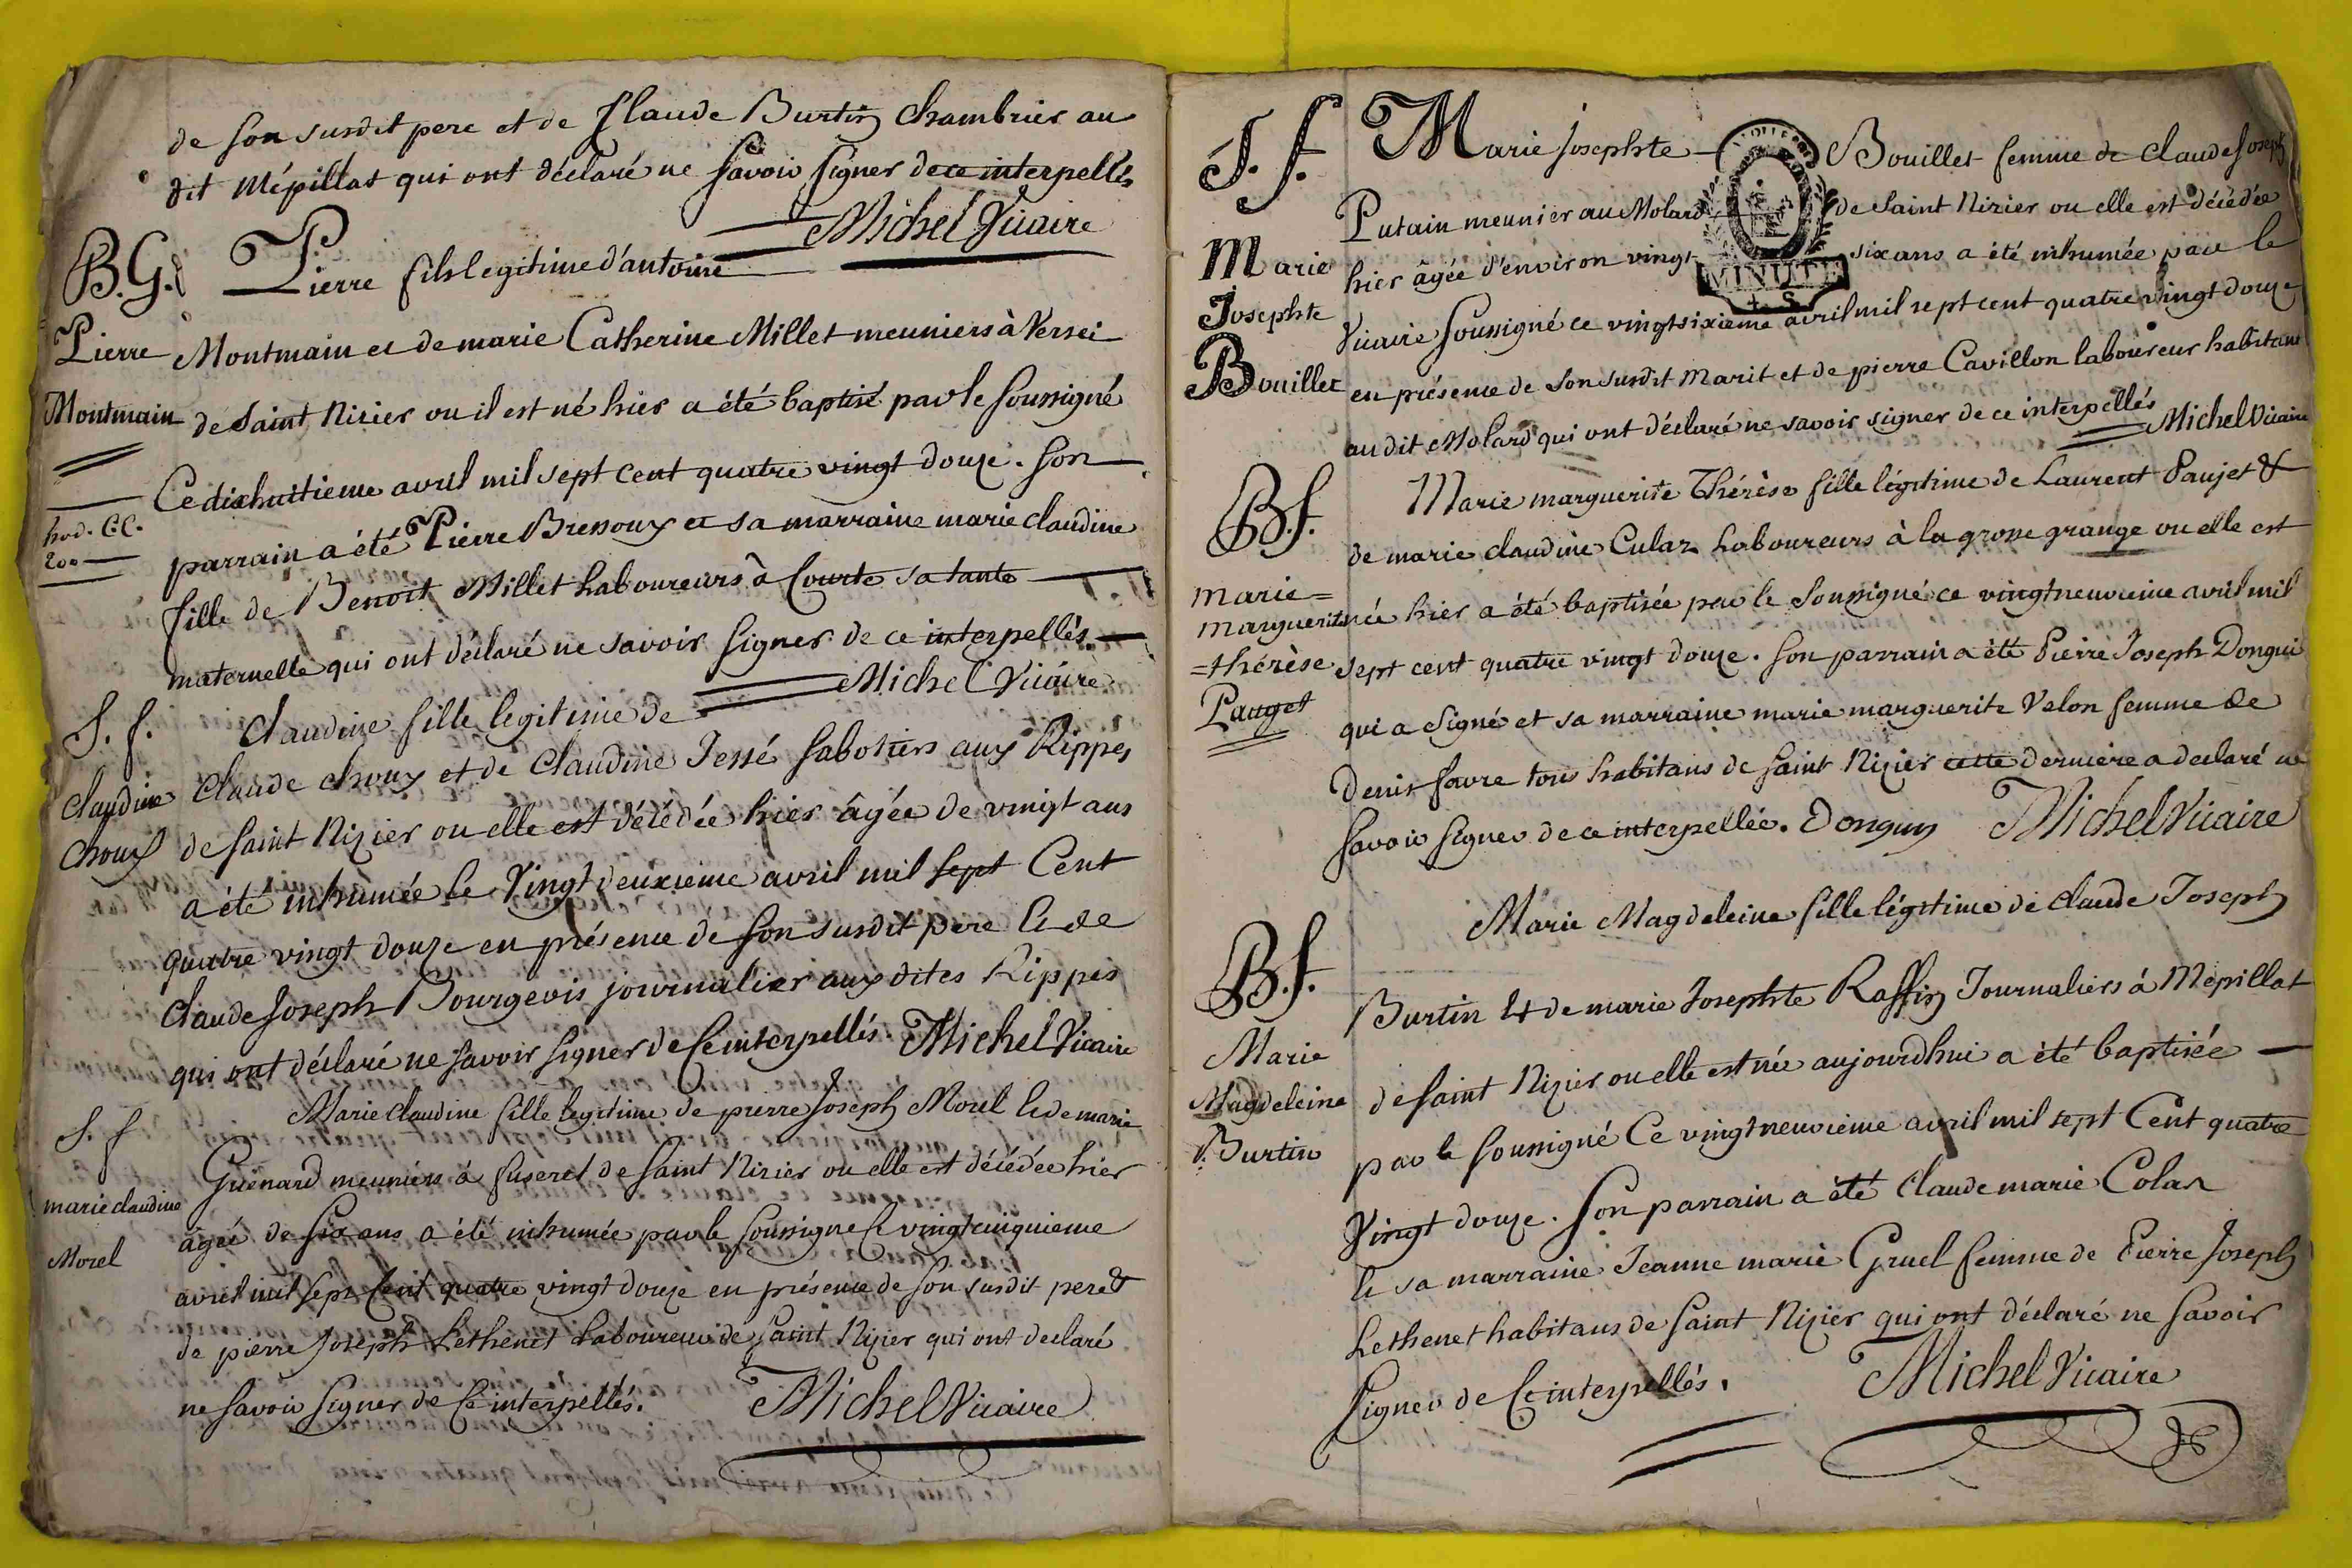 de son susdit pere et de Claude Burtin Chambrier au
dit Mépillat qui ont déclaré ne savoir signer de ce interpellés
Michel Vicaire
B.G.
Pierre fils legitime d'antoine
Pierre
Montmain et de marie Catherine Millet meuniers à Versei
Montmain
de Saint Nizier ou il est né hier a été baptisé par le soussigné
Ce dixhuitieme avril mil sept cent quatre vingt douze. Son
200
parrain a été Pierre Bressoux et sa marraine marie claudine
fille de Benoit Millet Laboureurs à Courte sa tante
maternelle qui ont déclaré ne savoir signer de ce interpellés.
Michel Vicaire
S. f.
Claudine fille legitime de
Claudine
Claude Choux et de Claudine Jessé sabotiers aux Rippes
Choux
de Saint Nizier ou elle est décédée hier âgée de vingt ans
a été inhumée le Vingt deuxieme avril mil sept Cent
quatre vingt douze en présence de son susdit pere & de
Claude Joseph Bourgeois journalier aux dites Rippes
qui ont déclaré ne savoir signer de Ce interpellés. Michel Vicaire
S. f
Marie Claudine fille legitime de pierre Joseph Morel & de marie
marie claudine
Guénard meuniers à fuseret de Saint Nizier ou elle est décédée hier
Morel
âgée de six ans a été inhumée par le soussigné Ce vingtcinquieme
avril mil sept Cent quatre vingt douze en présence de son susdit pere &
de pierre Joseph Lethenet Laboureur de Saint Nizier qui ont declaré
ne savoir signer de Ce interpellés.
Michel Vicaire
S. f.
Marie Josephte Bouillet femme de Claude Joseph
Putain meunier au Molard de Saint Nizier ou elle est décédée
Marie
Josephte
Bouillet
hier âgée d'environ vingt six ans a été inhumée par le
MINUTE
Vicaire soussigné ce vingtsixieme avril mil sept cent quatre vingt douze
en présence de son susdit Marit et de pierre Cavillon laboureur habitant
au dit Molard qui ont déclaré ne savoir signer de ce interpellés Michel Vicaire
B.f.
Marie marguerite Thérèse fille légitime de Laurent Paujet &
de marie claudine Culaz Laboureurs à la grosse grange ou elle est
marie=
marguerite
=thérèse
Pauget
née hier a été baptisée par le soussigné ce vingtneuvieme avril mil
sept cent quatre vingt douze. son parrain a été Pierre Joseph Dongui
qui a signé et sa marraine marie marguerite Velon femme de
Denis favre tous habitans de Saint Nizier cette derniere a declaré ne
savoir signer de ce interpellée. Donguy Michel Vicaire
B.f.
Marie Magdeleine fille légitime de Claude Joseph
Burtin & de marie Josephte Raffin Journaliers à Mépillat
Marie
Magdeleine
Burtin
de Saint Nizier ou elle est née aujourdhui a été baptisée
par le soussigné Ce vingtneuvieme avril mil sept Cent quatre
Vingt douze. Son parrain a été Claude marie Colas
& sa marraine Jeanne marie Gruel femme de Pierre Joseph
Lethenet habitans de Saint Nizier qui ont déclaré ne savoir
signer de Ce interpellés.
Michel Vicaire